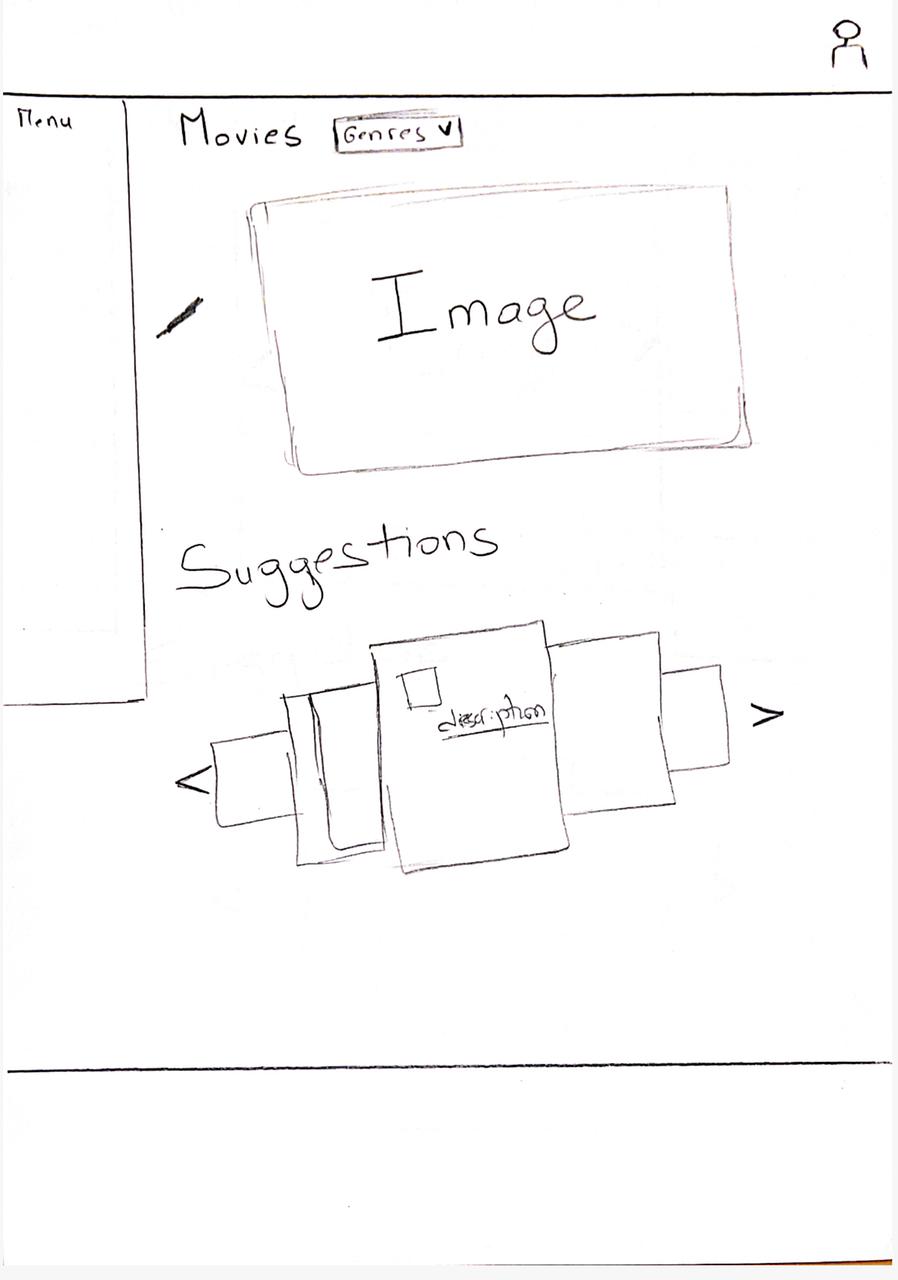 Menu
Movies
Genres
Image
Suggestions
description
<
>